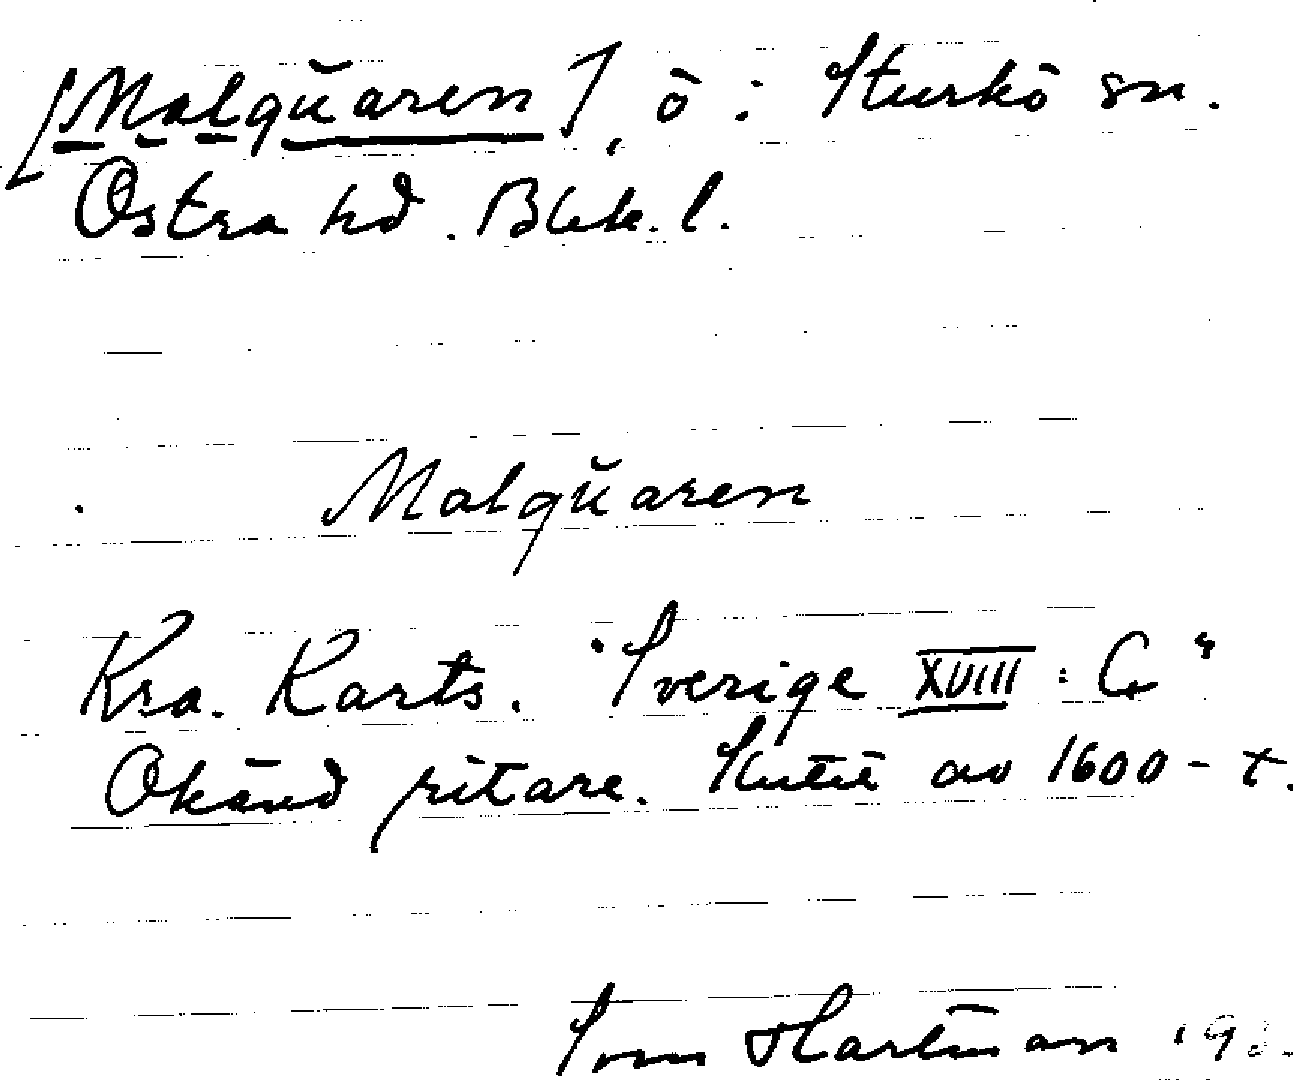 [Malquaren], ö i Sturkö sn.
Östra hd. Blek. l.
Malquaren
Kra. Karts. "Sverige XVIII : G"
Okänd ritare. Slutet av 1600-t.
Hartman